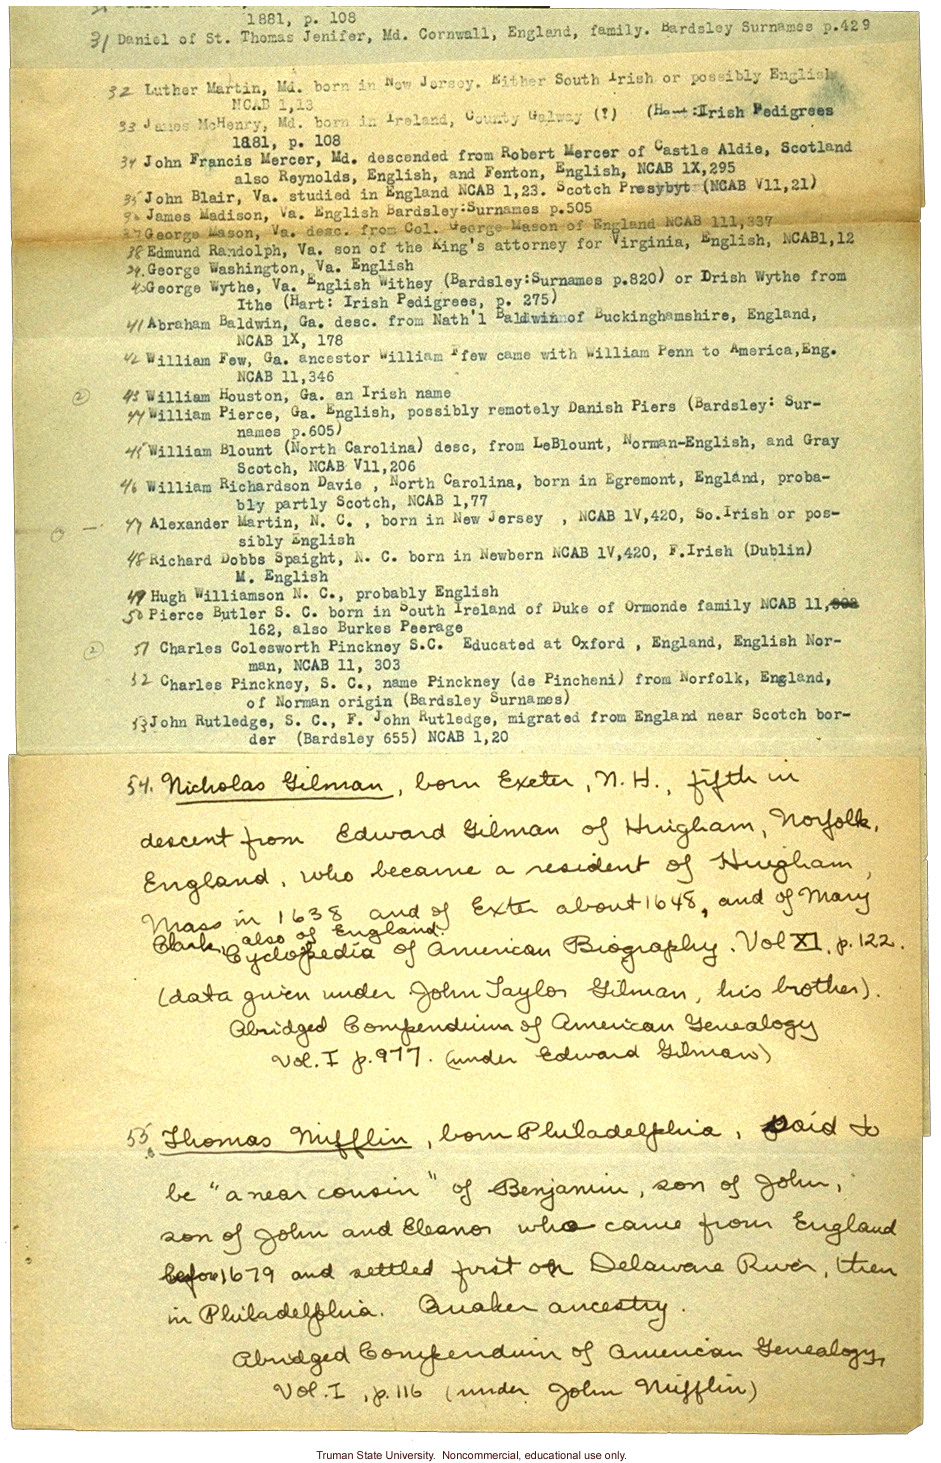 1881, p. 108
31 Daniel of St. Thomas Jenifer, Md. Cornwall, England, family. Bardsley Surnames p.429
32 Luther Martin, Md. born in New Jersey. Either South Irish or possibly English
NCAB 1,13
33 James McHenry, Md. born in Ireland, County Galway (?) (Hart:Irish Pedigrees
1881, p. 108
34 John Francis Mercer, Md. descended from Robert Mercer of Castle Aldie, Scotland
also Reynolds, English, and Fenton, English, NCAB 1X,295
35 John Blair, Va. studied in England NCAB 1,23. Scotch Presybyt (NCAB V11,21)
36 James Madison, Va. English Bardsley:Surnames p.505
37 George Mason, Va. desc. from Col. George Mason of England NCAB 111,337
38 Edmund Randolph, Va. son of the King's attorney for Virginia, English, NCAB1,12
39. George Washington, Va. English
40 George Wythe, Va. English Withey (Bardsley:Surnames p.820) or Drish Wythe from
Ithe (Hart: Irish Pedigrees, p. 275)
41 Abraham Baldwin, Ga. desc. from Nath'l Baldwin of Buckinghamshire, England,
NCAB 1X, 178
42 William Few, Ga. ancestor William Ffew came with William Penn to America,Eng.
NCAB 11,346
(2) 43 William Houston, Ga. an Irish name
44 William Pierce, Ga. English, possibly remotely Danish Piers (Bardsley: Sur-
names p.605)
45 William Blount (North Carolina) desc, from LeBlount, Norman-English, and Gray
Scotch, NCAB V11,206
46 William Richardson Davie , North Carolina, born in Egremont, England, proba-
bly partly Scotch, NCAB 1,77
47 Alexander Martin, N. C. , born in New Jersey , NCAB 1V,420, So.Irish or pos-
sibly English
48 Richard Dobbs Spaight, N. C. born in Newbern NCAB 1V,420, F.Irish (Dublin)
M. English
49 Hugh Williamson N. C., probably English
50 Pierce Butler S. C. born in South Ireland of Duke of Ormonde family NCAB 11,
162, also Burkes Peerage
(2) 51 Charles Colesworth Pinckney S.C. Educated at Oxford , England, English Nor-
man, NCAB 11, 303
52 Charles Pinckney, S. C., name Pinckney (de Pincheni) from Norfolk, England,
of Norman origin (Bardsley Surnames)
53 John Rutledge, S. C., F. John Rutledge, migrated from England near Scotch bor-
der (Bardsley 655) NCAB 1,20
54. Nicholas Gilman, born Exeter, N.H., fifth in
descent from Edward Gilman of Hingham, Norfolk,
England, who became a resident of Hingham,
Mass in 1638 and of Exter about 1648, and of Mary
Clark, also of England.
Cyclopedia of American Biography. Vol XI, p.122.
(data given under John Taylor Gilman, his brother).
Abridged Compendium of American Genealogy
Vol. I p.977. (under Edward Gilman)
55. Thomas Mifflin, born Philadelphia, said to
be "a near cousin" of Benjamin, son of John,
son of John and Eleanor who came from England
before 1679 and settled first on Delaware River, then
in Philadelphia. Quaker ancestry.
Abridged Compendium of American Genealogy,
Vol. I, p.116 (under John Mifflin)
Truman State University. Noncommercial, educational use only.